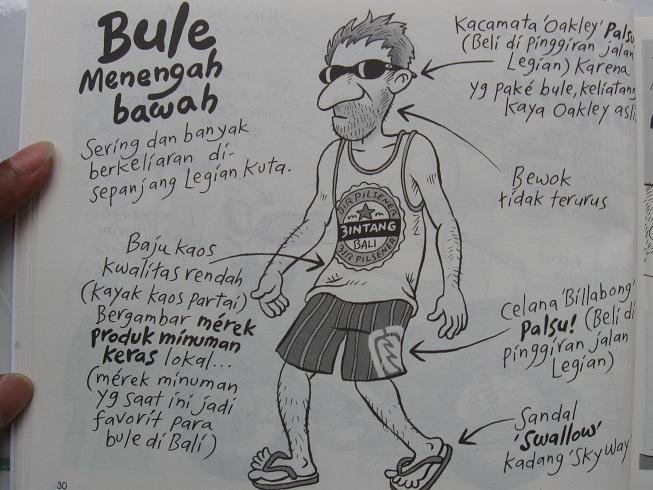 Bule
Menengah
bawah
Sering dan banyak
berkeliaran di-
sepanjang Legian Kuta.
Kacamata 'Oakley' Palsu
(Beli di pinggiran jalan
Legian) Karena
yg paké bule, keliatan
kaya Oakley asli
Bewok
tidak terurus
BIR PILSENER
BINTANG
BALI
BIR PILSENER
Baju kaos
kwalitas rendah
(kayak kaos partai)
Bergambar mérek
produk minuman
keras lokal...
(mérek minuman
yg saat ini jadi
favorit para
bule di Bali)
Celana 'Billabong'
Palsu! (Beli di
pinggiran jalan
Legian)
Sandal
'Swallow'
kadang 'Skyway'
30